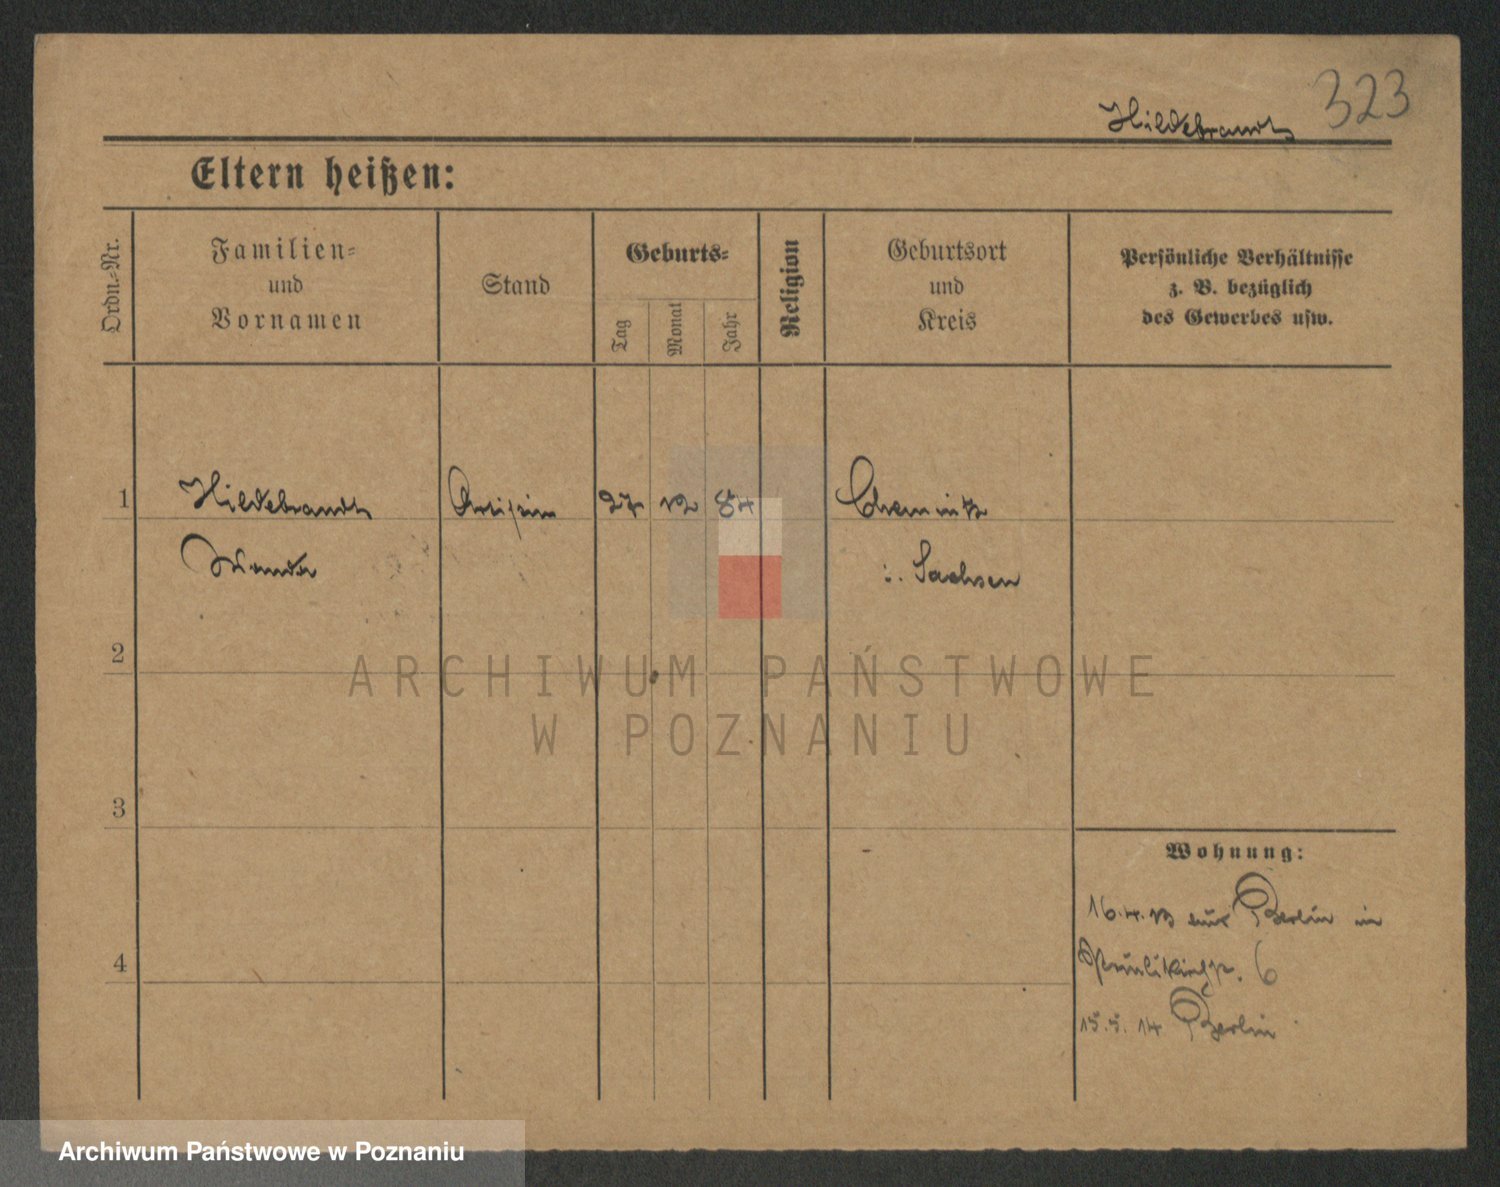 323
Hildebrandt
Eltern heißen:
Ordn.-Nr.
Familien-
und
Vornamen
Stand
Geburts-
Tag
Monat
Jahr
Religion
Geburtsort
und
Kreis
Persönliche Verhältnisse
z. B. bezüglich
des Gewerbes usw.
1 Hildebrandt 27 12 84 Chemnitz
Wanda i. Sachsen
2
ARCHIWUM PAŃSTWOWE
W POZNANIU
3
Wohnung:
16.4.13 aus Berlin in
Paulikirchstr. 6
4
15.5.14 Berlin
Archiwum Państwowe w Poznaniu